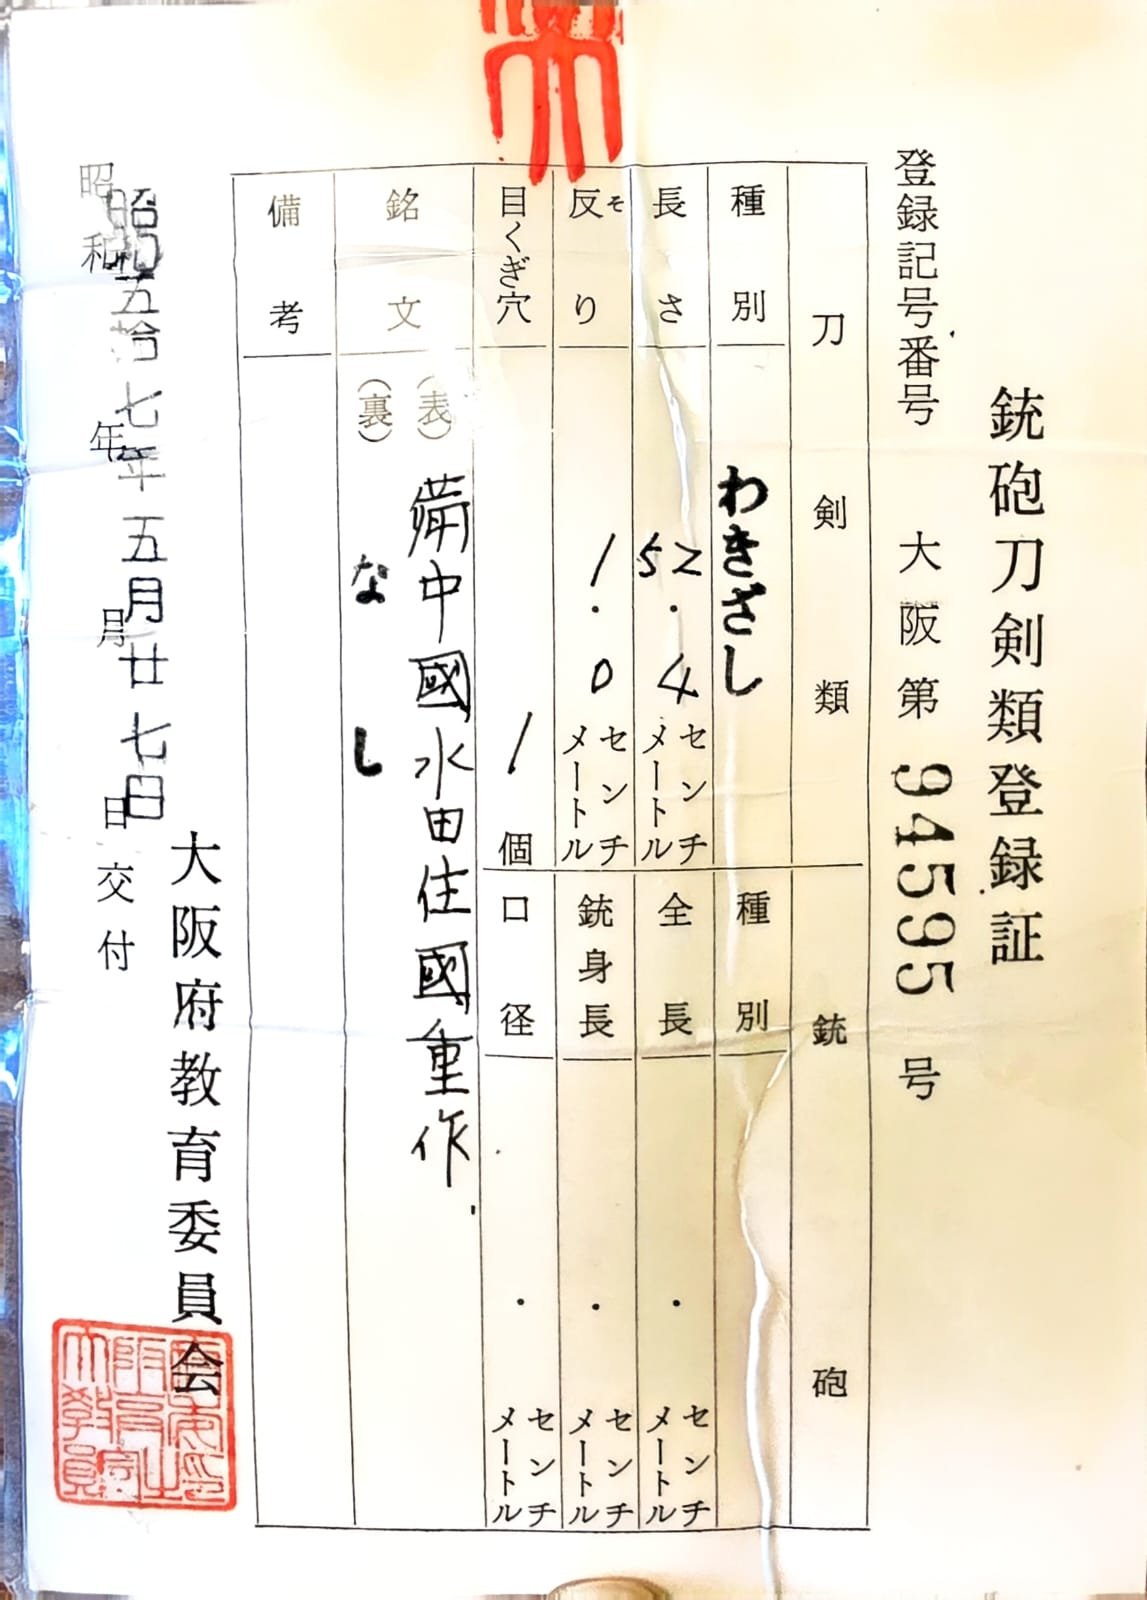 銃砲刀剣類登録証
登録記号番号 大阪第 94595 号
刀剣類
銃砲
種別 わきざし
長さ 52.4 センチメートル
反り そ 1.0 センチメートル
目くぎ穴 1 個
種別
全長 . センチメートル
銃身長 . センチメートル
口径 . センチメートル
銘文 (表) 備中國水田住國重作
(裏) なし
備考
昭和五拾七年五月廿七日
昭和 年 月 日交付
大阪府教育委員会